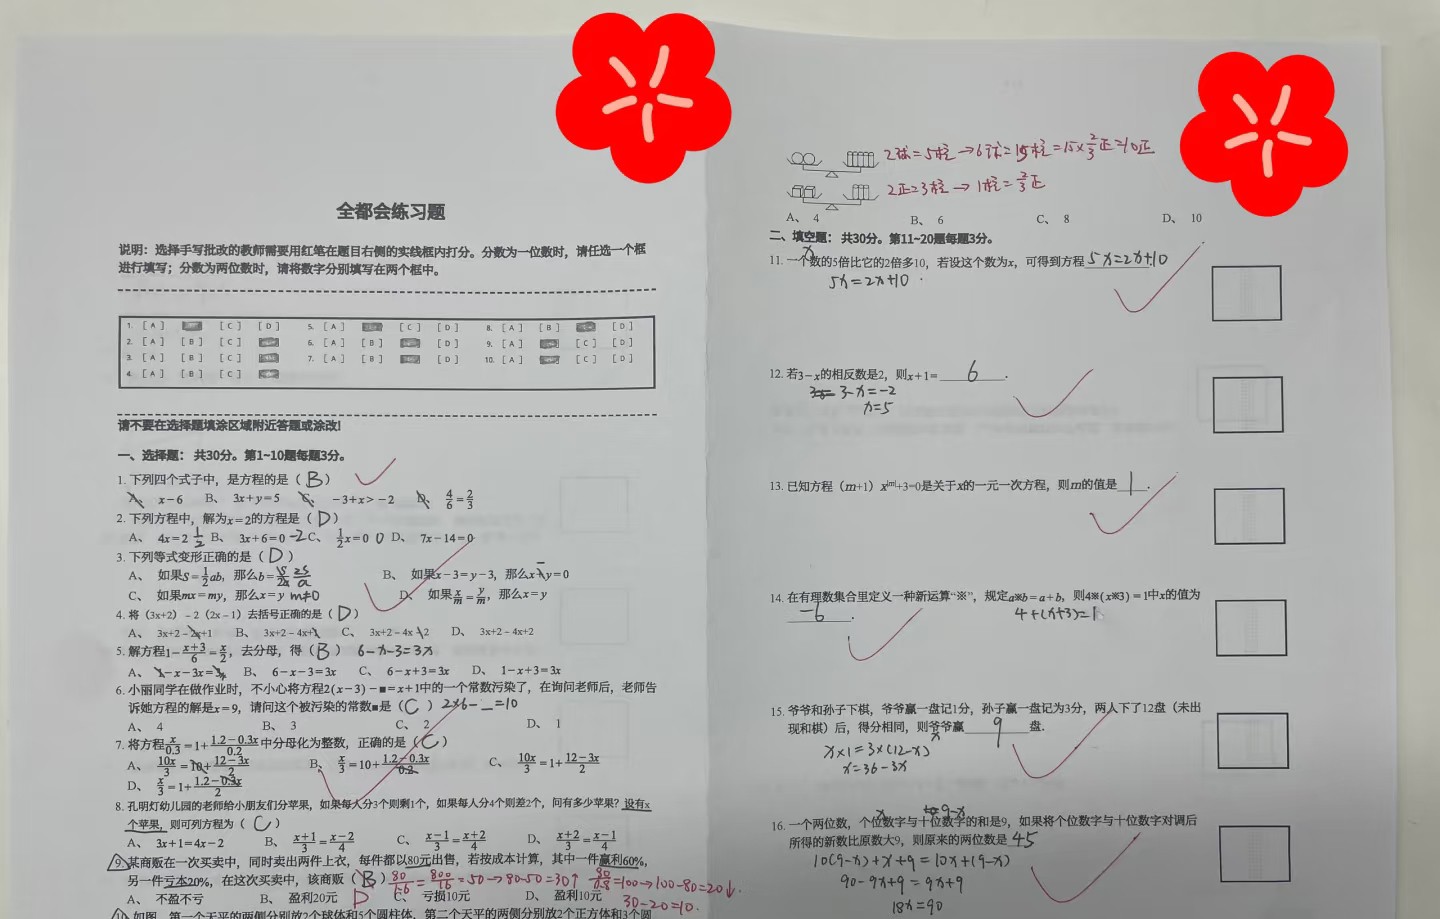 全都会练习题
说明：选择手写批改的教师需要用红笔在题目右侧的实线框内打分。分数为一位数时，请任选一个框
进行填写；分数为两位数时，请将数字分别填写在两个框中。
1. [ A ] [ C ] [ D ] 5. [ A ] [ C ] [ D ] 8. [ A ] [ B ] [ D ]
2. [ A ] [ B ] [ C ] 6. [ A ] [ B ] [ D ] 9. [ A ] [ C ] [ D ]
3. [ A ] [ B ] [ C ] 7. [ A ] [ B ] [ D ] 10. [ A ] [ C ] [ D ]
4. [ A ] [ B ] [ C ]
请不要在选择题填涂区域附近答题或涂改!
一、选择题： 共30分。第1~10题每题3分。
1. 下列四个式子中，是方程的是（ B ）
A、 x－6 B、 3x＋y＝5 C、 －3＋x＞－2 D、 4/6＝2/3
2. 下列方程中，解为x＝2的方程是（ D ）
A、 4x＝2 1/2 B、 3x＋6＝0 -2 C、 1/2x＝0 0 D、 7x－14＝0
3. 下列等式变形正确的是（ D ）
A、 如果S＝1/2ab，那么b＝S/2a 2S/a B、 如果x－3＝y－3，那么x－y＝0
C、 如果mx＝my，那么x＝y m≠0 D、 如果x/m＝y/m，那么x＝y
4. 将（3x+2）－2（2x－1）去括号正确的是（ D ）
A、 3x+2－2x+1 B、 3x+2－4x+1 C、 3x+2－4x－2 D、 3x+2－4x+2
5. 解方程1－x＋3/6＝x/2，去分母，得（ B ） 6-x-3=3x
A、 1－x－3x＝3 B、 6－x－3＝3x C、 6－x＋3＝3x D、 1－x＋3＝3x
6. 小丽同学在做作业时，不小心将方程2(x－3)－■＝x＋1中的一个常数污染了，在询问老师后，老师告
诉她方程的解是x＝9，请问这个被污染的常数■是（ C ） 2×6-_=10
A、 4 B、 3 C、 2 D、 1
7. 将方程x/0.3＝1＋1.2－0.3x/0.2中分母化为整数，正确的是（ C ）
A、 10x/3＝10＋12－3x/2 B、 x/3＝10＋1.2－0.3x/0.2 C、 10x/3＝1＋12－3x/2
D、 x/3＝1＋1.2－0.3x/2
8. 孔明灯幼儿园的老师给小朋友们分苹果，如果每人分3个则剩1个，如果每人分4个则差2个，问有多少苹果？设有x
个苹果，则可列方程为（ C ）
A、 3x＋1＝4x－2 B、 x＋1/3＝x－2/4 C、 x－1/3＝x＋2/4 D、 x＋2/3＝x－1/4
9. 某商贩在一次买卖中，同时卖出两件上衣，每件都以80元出售，若按成本计算，其中一件赢利60%，
另一件亏本20%，在这次买卖中，该商贩（ B ） 80/1.6=800/16=50→80-50=30↑ 80/0.8=100→100-80=20↓.
A、 不盈不亏 B、 盈利20元 D C、 亏损10元 D、 盈利10元 30-20=10.
10. 如图，第一个天平的两侧分别放2个球体和5个圆柱体，第二个天平的两侧分别放2个正方体和3个圆
2球=5柱→6球=15柱=15×2/3正=10正
2正=3柱→1柱=2/3正
A、 4 B、 6 C、 8 D、 10
二、填空题： 共30分。第11~20题每题3分。
x
11. 一个数的5倍比它的2倍多10，若设这个数为x，可得到方程5x=2x+10
5x=2x+10
12. 若3－x的相反数是2，则x＋1＝ 6 .
3-x=-2
x=5
13. 已知方程（m+1）x|m|+3=0是关于x的一元一次方程，则m的值是 1 .
14. 在有理数集合里定义一种新运算“※”，规定a※b＝a＋b，则4※(x※3)＝1中x的值为
-6 .
4+(x+3)=1
15. 爷爷和孙子下棋，爷爷赢一盘记1分，孙子赢一盘记为3分，两人下了12盘（未出
现和棋）后，得分相同，则爷爷赢 9 盘.
x
x×1=3×(12-x)
x=36-3x
x 9-x
16. 一个两位数，个位数字与十位数字的和是9，如果将个位数字与十位数字对调后
所得的新数比原数大9，则原来的两位数是 45
10(9-x)+x+9=10x+(9-x)
90-9x+9=9x+9
18x=90